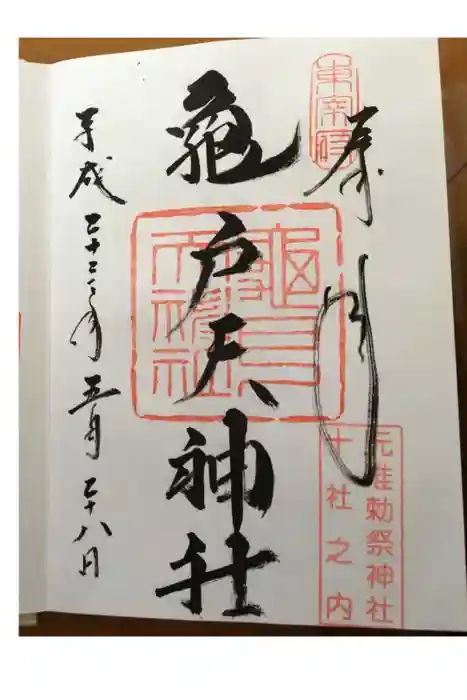 奉拝
東宰府
亀戸天神社
亀戸天神社
元准勅祭神社
十社之内
平成二十二年五月二十八日